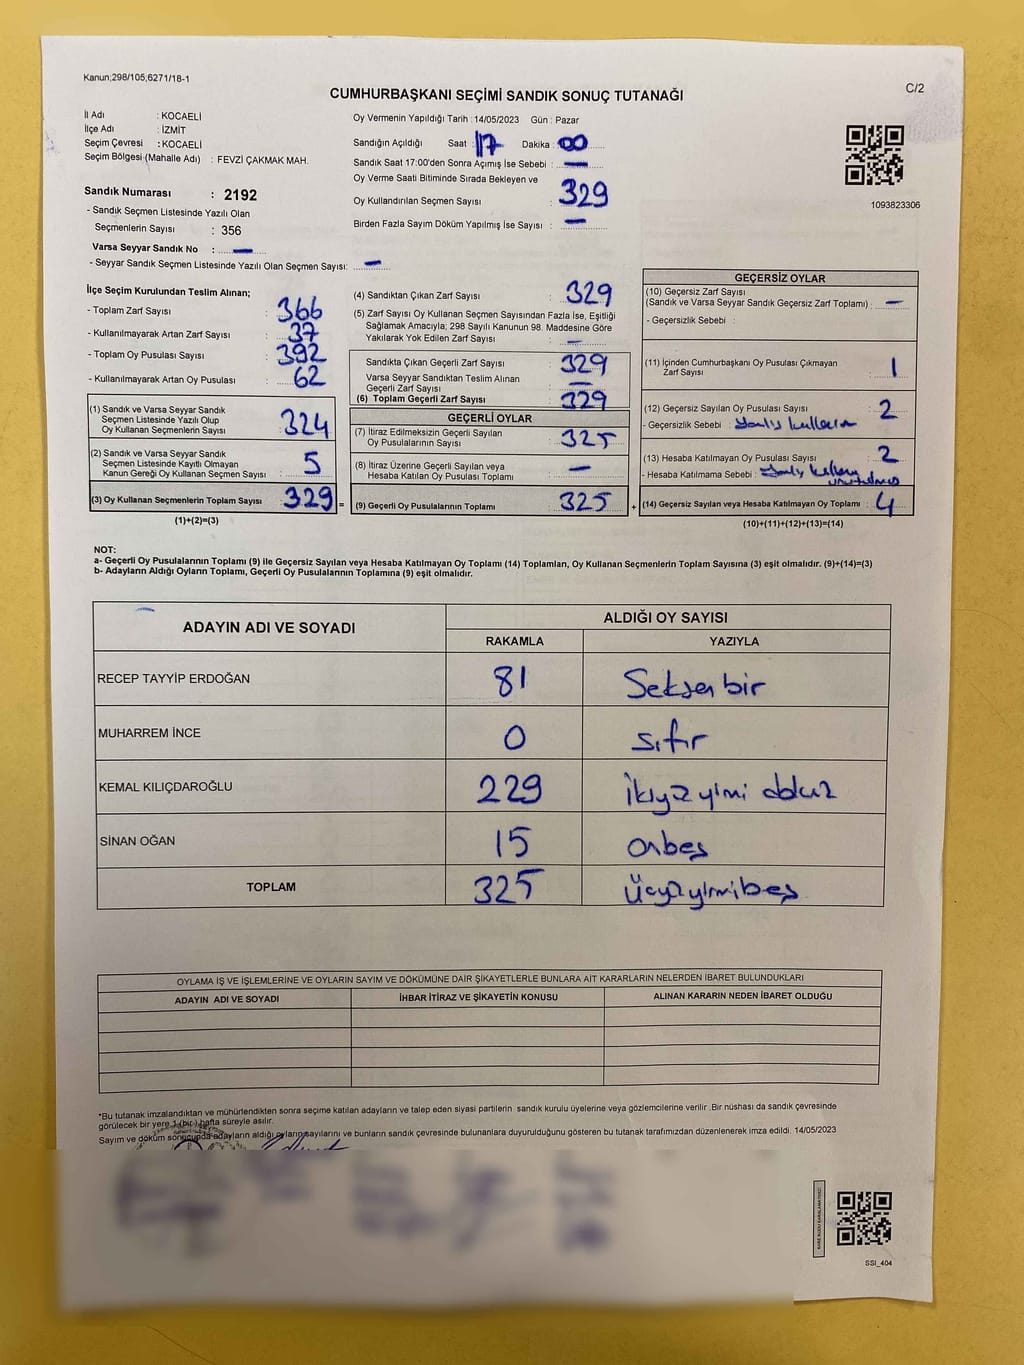 Kanun;298/105,6271/18-1
C/2
CUMHURBAŞKANI SEÇİMİ SANDIK SONUÇ TUTANAĞI
İl Adı : KOCAELİ
İlçe Adı : İZMİT
Seçim Çevresi : KOCAELİ
Seçim Bölgesi (Mahalle Adı) : FEVZİ ÇAKMAK MAH.
Sandık Numarası : 2192
- Sandık Seçmen Listesinde Yazılı Olan
Seçmenlerin Sayısı : 356
Varsa Seyyar Sandık No : —
- Seyyar Sandık Seçmen Listesinde Yazılı Olan Seçmen Sayısı: —
Oy Vermenin Yapıldığı Tarih : 14/05/2023 Gün : Pazar
Sandığın Açıldığı Saat : 17 Dakika : 00
Sandık Saat 17:00'den Sonra Açımış İse Sebebi : —
Oy Verme Saati Bitiminde Sırada Bekleyen ve
Oy Kullandırılan Seçmen Sayısı : 329
Birden Fazla Sayım Döküm Yapılmış İse Sayısı : —
1093823306
İlçe Seçim Kurulundan Teslim Alınan;
- Toplam Zarf Sayısı : 366
- Kullanılmayarak Artan Zarf Sayısı : 37
- Toplam Oy Pusulası Sayısı : 392
- Kullanılmayarak Artan Oy Pusulası : 62
(1) Sandık ve Varsa Seyyar Sandık
Seçmen Listesinde Yazılı Olup
Oy Kullanan Seçmenlerin Sayısı : 324
(2) Sandık ve Varsa Seyyar Sandık
Seçmen Listesinde Kayıtlı Olmayan
Kanun Gereği Oy Kullanan Seçmen Sayısı : 5
(3) Oy Kullanan Seçmenlerin Toplam Sayısı : 329 =
(1)+(2)=(3)
(4) Sandıktan Çıkan Zarf Sayısı : 329
(5) Zarf Sayısı Oy Kullanan Seçmen Sayısından Fazla İse, Eşitliği
Sağlamak Amacıyla; 298 Sayılı Kanunun 98. Maddesine Göre
Yakılarak Yok Edilen Zarf Sayısı : —
Sandıkta Çıkan Geçerli Zarf Sayısı : 329
Varsa Seyyar Sandıktan Teslim Alınan
Geçerli Zarf Sayısı : —
(6) Toplam Geçerli Zarf Sayısı : 329
GEÇERLİ OYLAR
(7) İtiraz Edilmeksizin Geçerli Sayılan
Oy Pusulalarının Sayısı : 325
(8) İtiraz Üzerine Geçerli Sayılan veya
Hesaba Katılan Oy Pusulası Toplamı : —
(9) Geçerli Oy Pusulalarının Toplamı : 325 +
GEÇERSİZ OYLAR
(10) Geçersiz Zarf Sayısı
(Sandık ve Varsa Seyyar Sandık Geçersiz Zarf Toplamı) : —
- Geçersizlik Sebebi :
(11) İçinden Cumhurbaşkanı Oy Pusulası Çıkmayan
Zarf Sayısı : 1
(12) Geçersiz Sayılan Oy Pusulası Sayısı : 2
- Geçersizlik Sebebi :
(13) Hesaba Katılmayan Oy Pusulası Sayısı : 2
- Hesaba Katılmama Sebebi :
(14) Geçersiz Sayılan veya Hesaba Katılmayan Oy Toplamı : 4
(10)+(11)+(12)+(13)=(14)
NOT:
a- Geçerli Oy Pusulalarının Toplamı (9) ile Geçersiz Sayılan veya Hesaba Katılmayan Oy Toplamı (14) Toplamları, Oy Kullanan Seçmenlerin Toplam Sayısına (3) eşit olmalıdır. (9)+(14)=(3)
b- Adayların Aldığı Oyların Toplamı, Geçerli Oy Pusulalarının Toplamına (9) eşit olmalıdır.
ADAYIN ADI VE SOYADI
ALDIĞI OY SAYISI
RAKAMLA YAZIYLA
RECEP TAYYİP ERDOĞAN 81 Seksen bir
MUHARREM İNCE 0 sıfır
KEMAL KILIÇDAROĞLU 229 ikiyüzyirmi dokuz
SİNAN OĞAN 15 onbeş
TOPLAM 325 Üçyüzyirmibeş
OYLAMA İŞ VE İŞLEMLERİNE VE OYLARIN SAYIM VE DÖKÜMÜNE DAİR ŞİKAYETLERLE BUNLARA AİT KARARLARIN NELERDEN İBARET BULUNDUKLARI
ADAYIN ADI VE SOYADI İHBAR İTİRAZ VE ŞİKAYETİN KONUSU ALINAN KARARIN NEDEN İBARET OLDUĞU
*Bu tutanak imzalandıktan ve mühürlendikten sonra seçime katılan adayların ve talep eden siyasi partilerin sandık kurulu üyelerine veya gözlemcilerine verilir .Bir nüshası da sandık çevresinde
görülecek bir yere 1 (bir) hafta süreyle asılır.
Sayım ve döküm sonucunda adayların aldığı oyların sayılarını ve bunların sandık çevresinde bulunanlara duyurulduğunu gösteren bu tutanak tarafımızdan düzenlenerek imza edildi. 14/05/2023
SSI_404